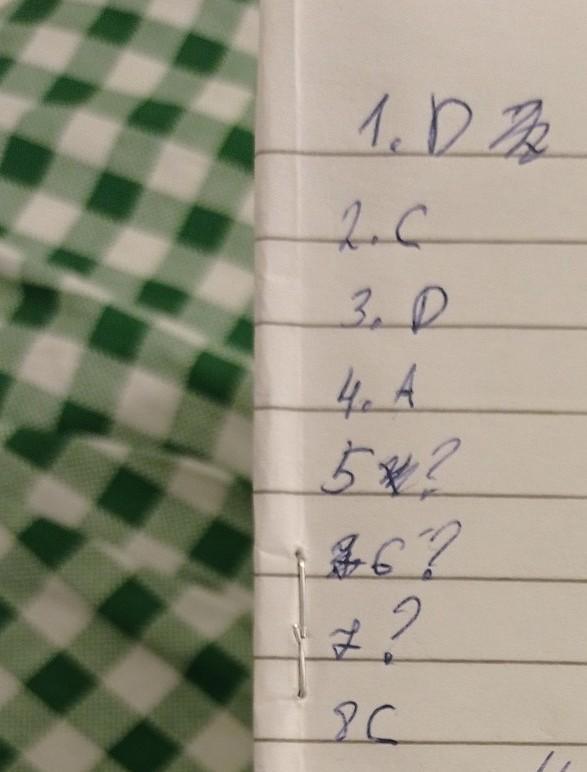 1. D
2. C
3. D
4. A
5 ?
6 ?
7 ?
8 C